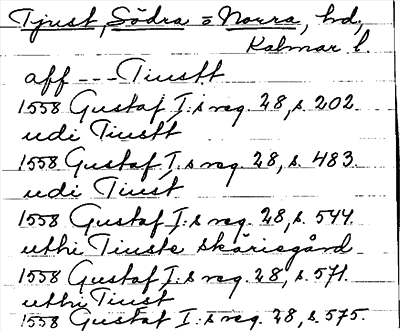 Tjust, Södra o Norra, hd,
Kalmar l.
aff --- Tiustt
1558 Gustaf I:s reg. 28, s. 202.
udi Tiustt
1558 Gustaf I:s reg. 28, s. 483.
udi Tiust
1558 Gustaf I:s reg. 28, s. 544.
uthi Tiuste skäriegård
1558 Gustaf I:s reg. 28, s. 571.
uthi Tiust
1558 Gustaf I:s reg. 28, s. 575.